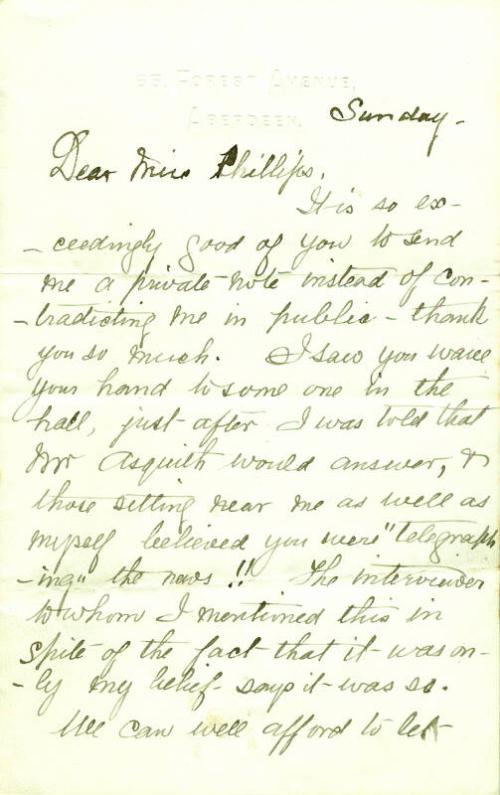 63, Forest Avenue,
Aberdeen.
Sunday -
Dear Miss Phillips,
It is so ex-
- ceedingly good of you to send
me a private note instead of con-
- tradicting me in public - thank
you so much. I saw you wave
your hand to some one in the
hall, just after I was told that
Mr Asquith would answer, &
those sitting near me as well as
myself believed you were "telegraph
- ing" the news !! The interviewer
to whom I mentioned this in
spite of the fact that it was on-
- ly my belief - says it was so.
We can well afford to let